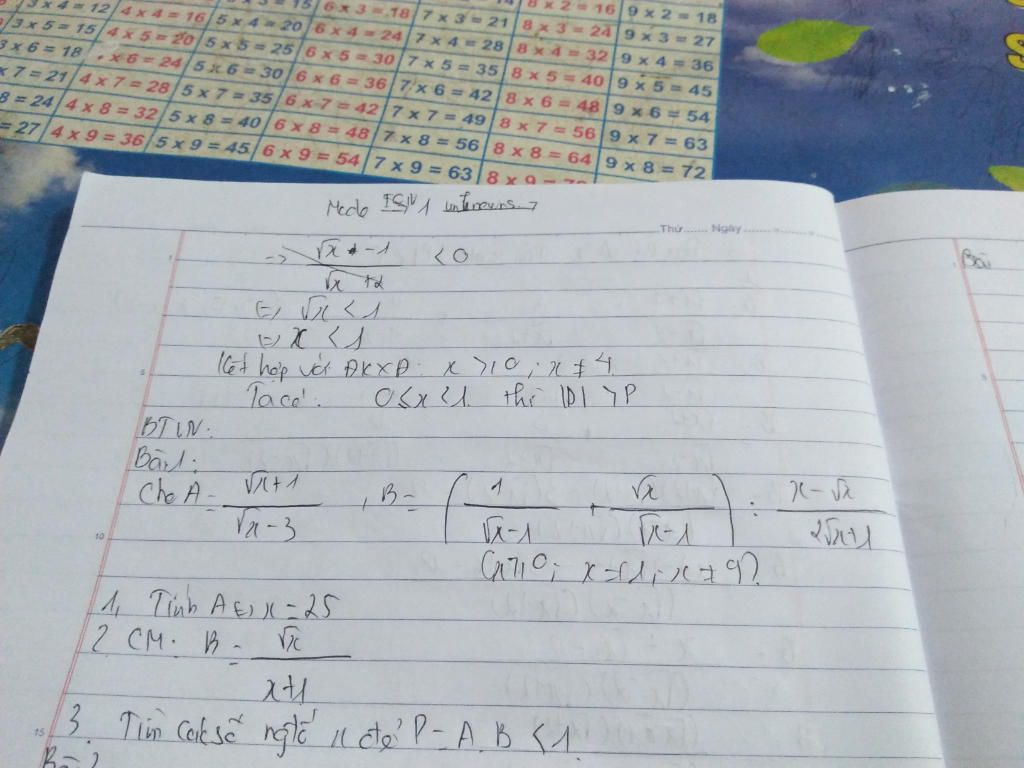 3 x 4 = 12 4 x 4 = 16 5 x 3 = 15 6 x 3 = 18 7 x 3 = 21 8 x 2 = 16 9 x 2 = 18
3 x 5 = 15 4 x 5 = 20 5 x 4 = 20 6 x 4 = 24 7 x 4 = 28 8 x 3 = 24 9 x 3 = 27
3 x 6 = 18 x 6 = 24 5 x 5 = 25 6 x 5 = 30 7 x 5 = 35 8 x 4 = 32 9 x 4 = 36
x 7 = 21 4 x 7 = 28 5 x 6 = 30 6 x 6 = 36 7 x 6 = 42 8 x 5 = 40 9 x 5 = 45
8 = 24 4 x 8 = 32 5 x 7 = 35 6 x 7 = 42 7 x 7 = 49 8 x 6 = 48 9 x 6 = 54
= 27 4 x 9 = 36 5 x 8 = 40 6 x 8 = 48 7 x 8 = 56 8 x 7 = 56 9 x 7 = 63
5 x 9 = 45 6 x 9 = 54 7 x 9 = 63 8 x 8 = 64 9 x 8 = 72
Thứ...... Ngày
=> (√x - 1)/(√x + 2) < 0
<=> √x < 1
<=> x < 1
Kết hợp với ĐKXĐ: x ≥ 0; x ≠ 4
Ta có: 0 ≤ x < 1 thì |P| > P
BTVN:
Bài 1:
Cho A = (√x+1)/(√x-3), B = (1/(√x-1) + √x/(√x-1)) : (x-√x)/(2√x+1)
(x ≥ 0; x ≠ 1; x ≠ 9).
1, Tính A <=> x = 25
2 CM: B = √x/(x+1)
3. Tìm x để P = A.B < 1
Bài 2
Bài
5
10
15